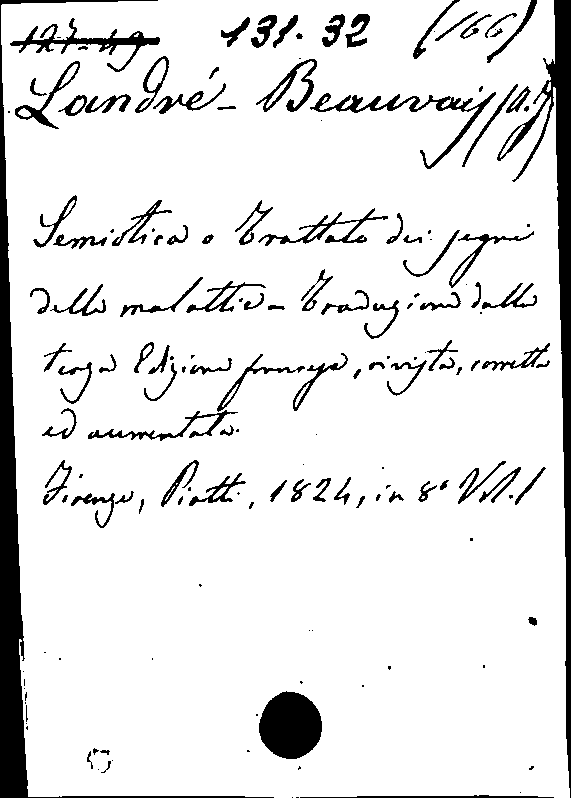 127-49 131.32 (166)
Landré-Beauvais (A.J)
Semiotica o Trattato dei segni
delle malattie - Traduzione dalla
terza Edizione francese, rivista, corretta
ed aumentata.
Firenze, Piatti, 1824, in 8° Vol. 1